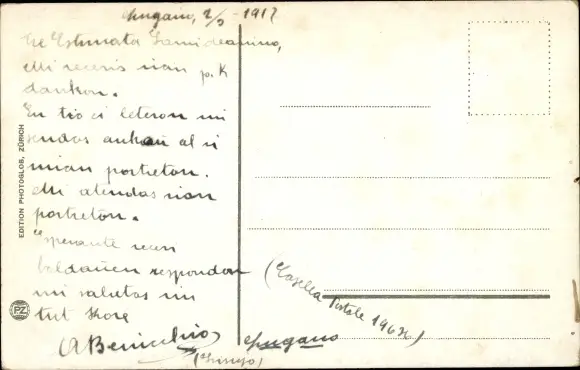 Lugano, 2/5 - 1917
Tre Estimata Samideanino,
Mi recevis vian p. K
dankon.
En tio ĉi leteron mi
sendas ankaŭ al vi
mian portreton.
Mi atendas vian
portreton.
Esperante recevi
baldaŭen respondon
mi salutas vin
tut kore
(Casella Postale 19636)
Lugano
EDITION PHOTOGLOB, ZÜRICH
PZ